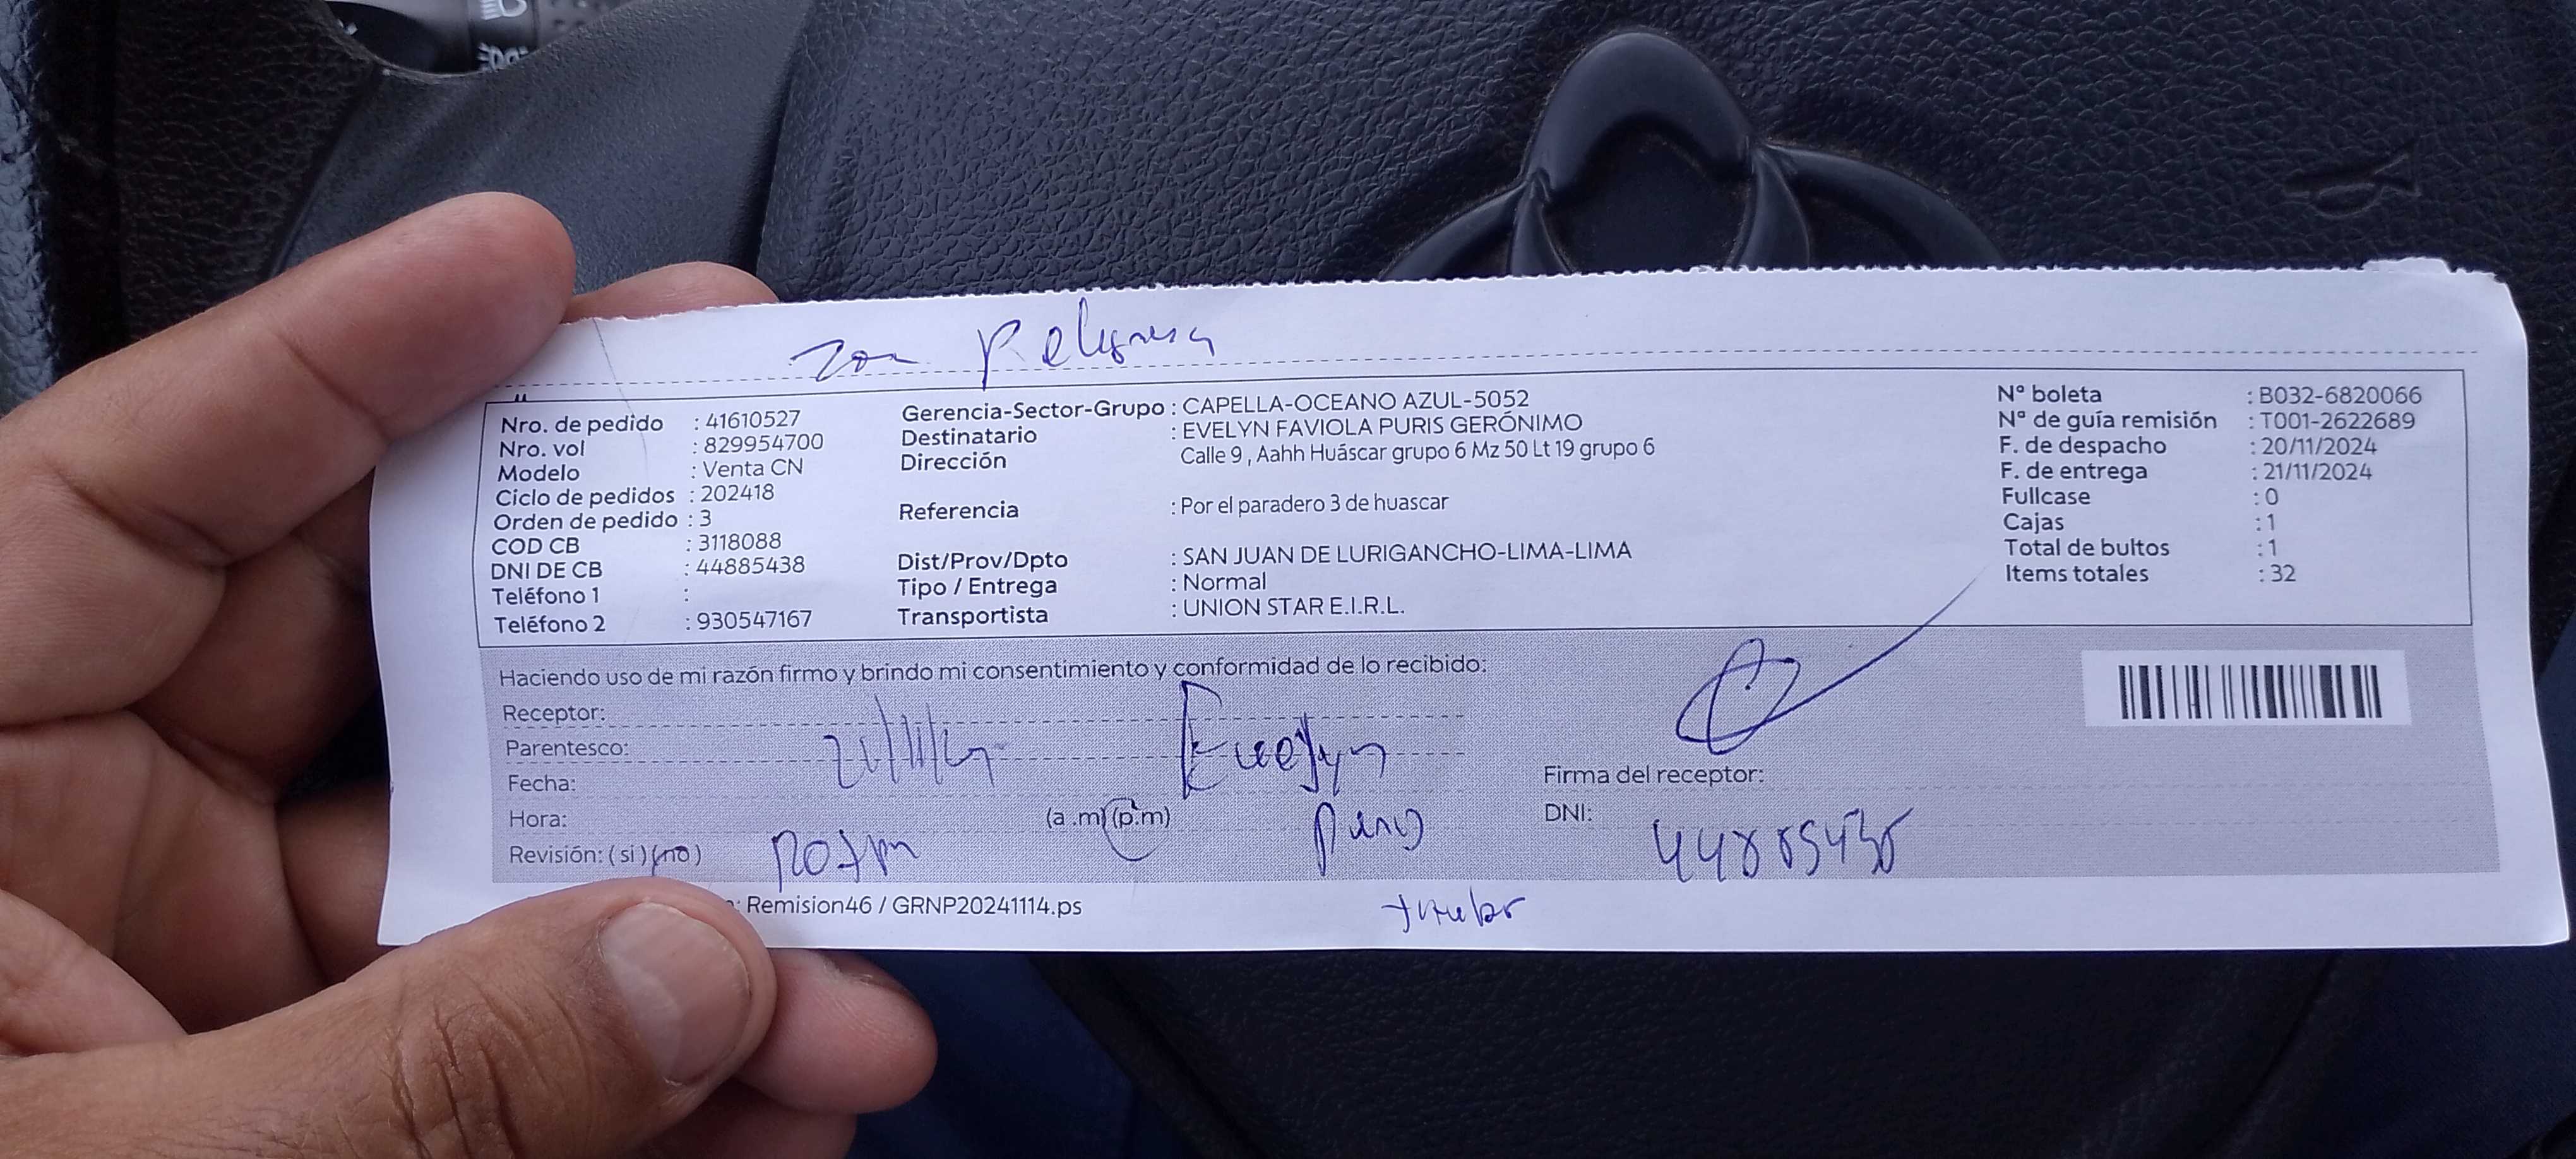 Nro. de pedido : 41610527
Nro. vol : 829954700
Modelo : Venta CN
Ciclo de pedidos : 202418
Orden de pedido : 3
COD CB : 3118088
DNI DE CB : 44885438
Teléfono 1 :
Teléfono 2 : 930547167
Gerencia-Sector-Grupo : CAPELLA-OCEANO AZUL-5052
Destinatario : EVELYN FAVIOLA PURIS GERÓNIMO
Dirección Calle 9 , Aahh Huáscar grupo 6 Mz 50 Lt 19 grupo 6
Referencia : Por el paradero 3 de huascar
Dist/Prov/Dpto : SAN JUAN DE LURIGANCHO-LIMA-LIMA
Tipo / Entrega : Normal
Transportista : UNION STAR E.I.R.L.
Nº boleta : B032-6820066
Nª de guía remisión : T001-2622689
F. de despacho : 20/11/2024
F. de entrega : 21/11/2024
Fullcase : 0
Cajas : 1
Total de bultos : 1
Items totales : 32
Haciendo uso de mi razón firmo y brindo mi consentimiento y conformidad de lo recibido:
Receptor:
Parentesco: Evelyn
Fecha:
Hora: (a .m) (p.m)
Revisión: ( si ) (no)
Firma del receptor:
DNI: 44885438
: Remision46 / GRNP20241114.ps